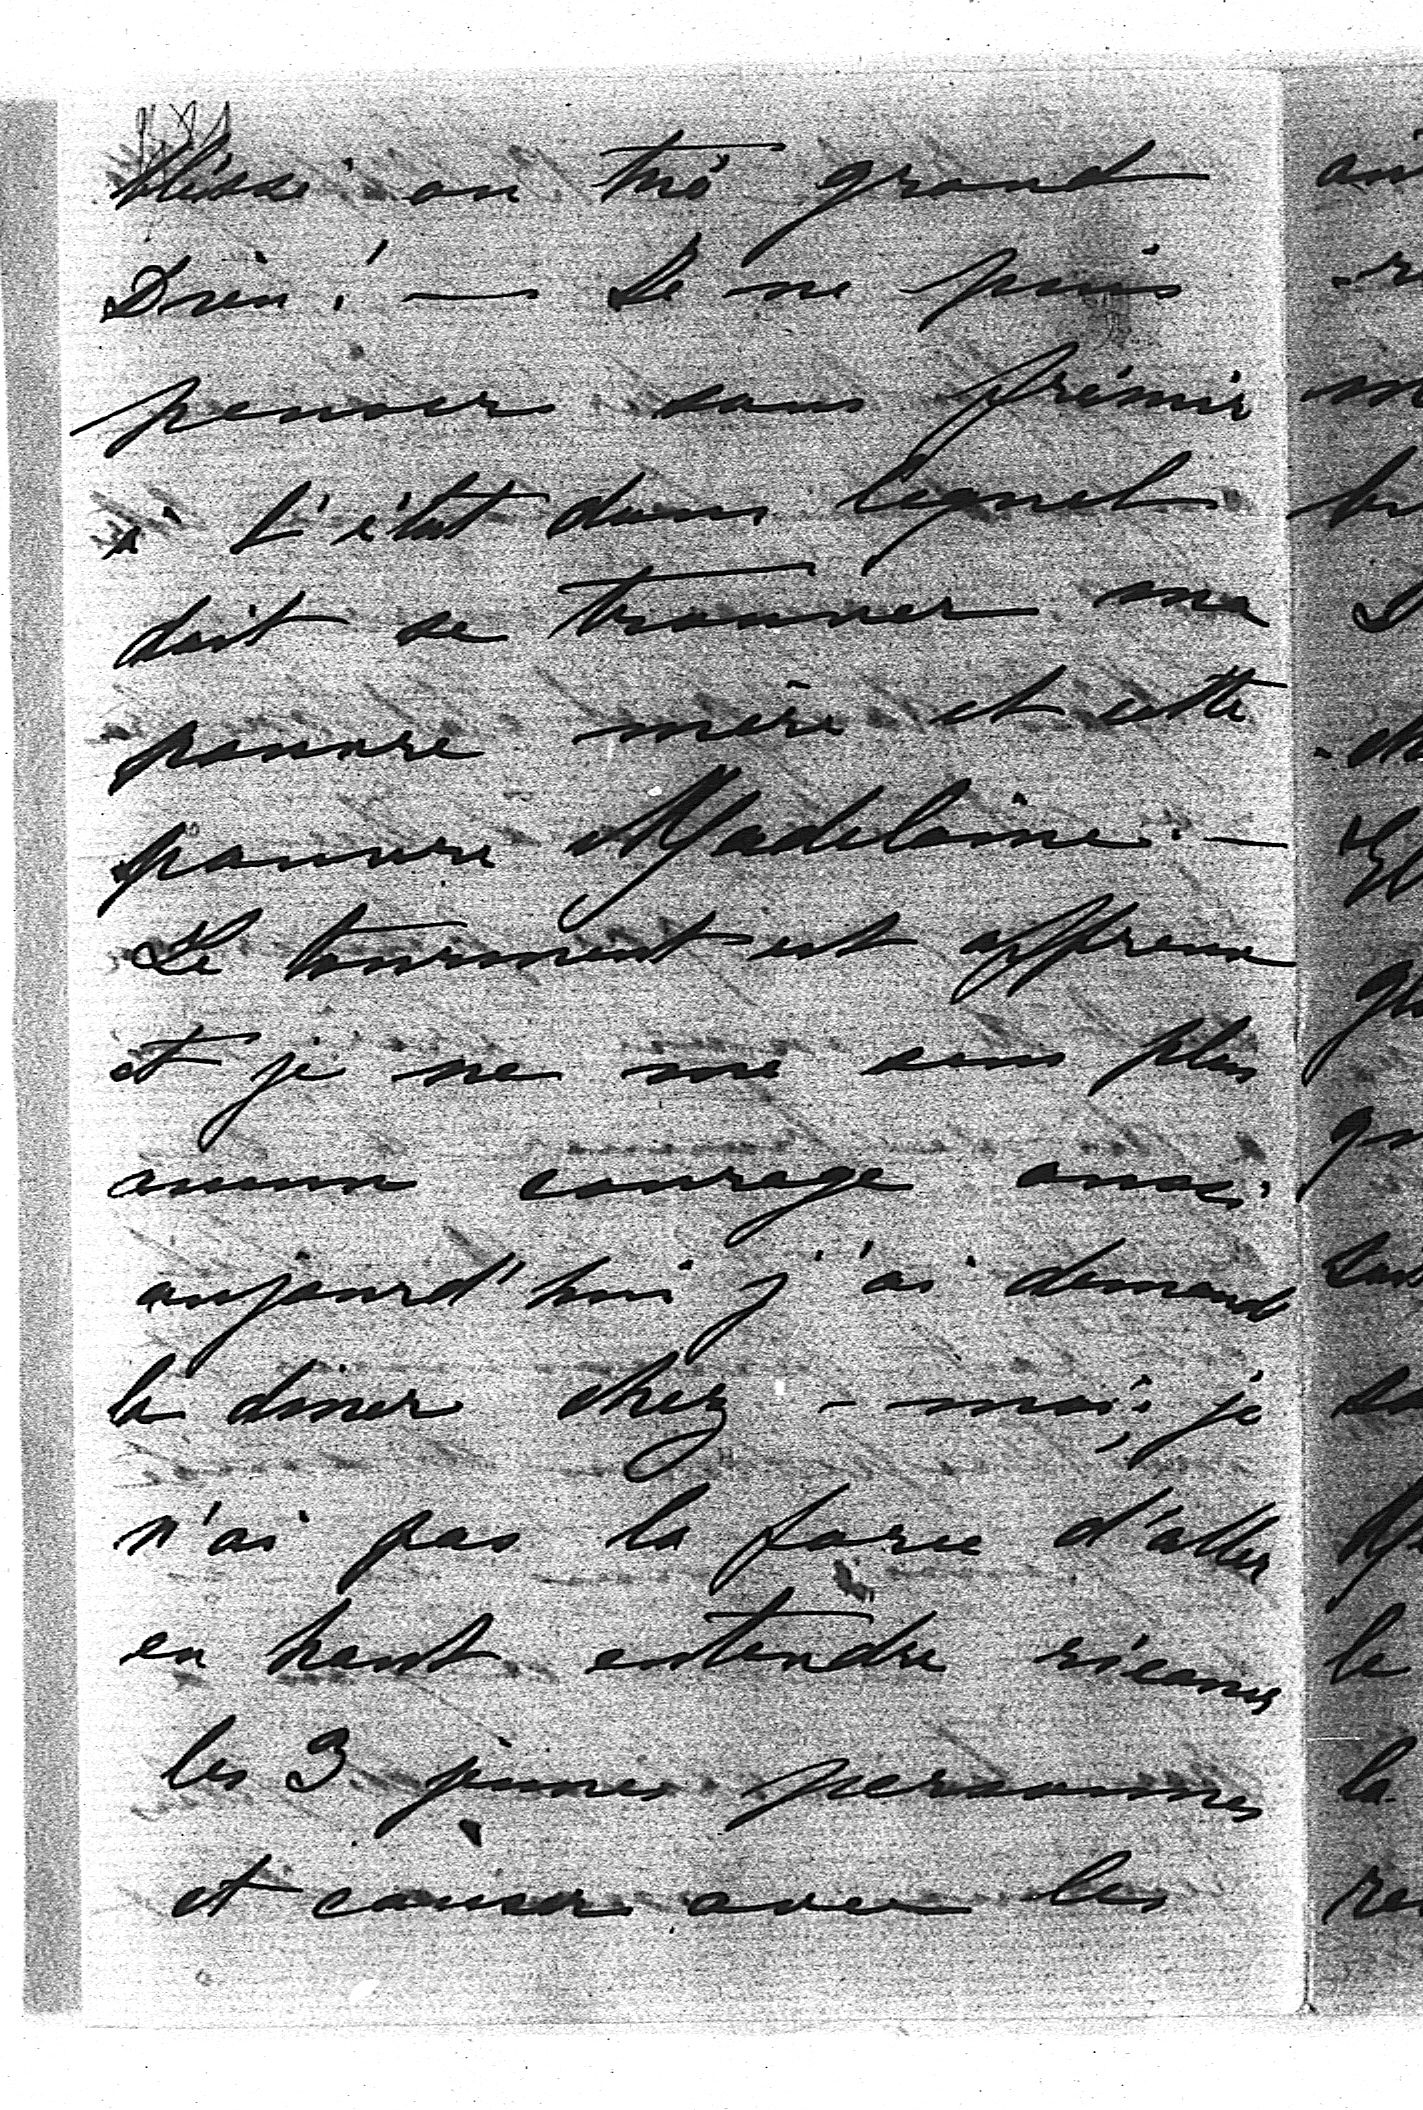 blessé ou tué grand
Dieu! — Je ne puis
penser sans frémir
à l'état dans lequel
doit se trouver ma
pauvre mère et cette
pauvre Madelaine. —
Le tourment est affreux
et je ne me sens plus
aucun courage aussi
aujourd'hui j'ai demandé
le diner chez-moi; je
n'ai pas la force d'aller
en haut entendre ricaner
les 3 jeunes personnes
et causer avec les